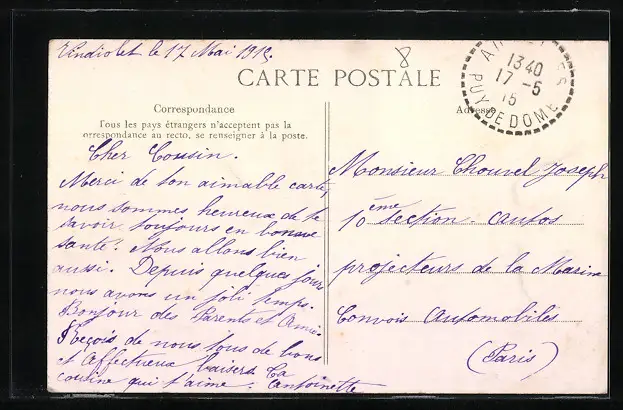 le 17 Mai 1915.
8
CARTE POSTALE
1340
17 -5
15
PUY DE DOME
Correspondance
Tous les pays étrangers n'acceptent pas la
correspondance au recto, se renseigner à la poste.
Adresse
Cher Cousin.
Merci de ton aimable carte,
nous sommes heureux de te
savoir toujours en bonne
santé. Nous allons bien
aussi. Depuis quelques jour
nous avons un joli temps.
Bonjour des Parents et Amis.
Reçois de nous tous de bons
et Affectueux baisers Ta
cousine qui t'aime. Antoinette
Monsieur Chouvel Joseph
10ème section autos
projecteurs de la Marine
Convois Automobiles
(Paris)